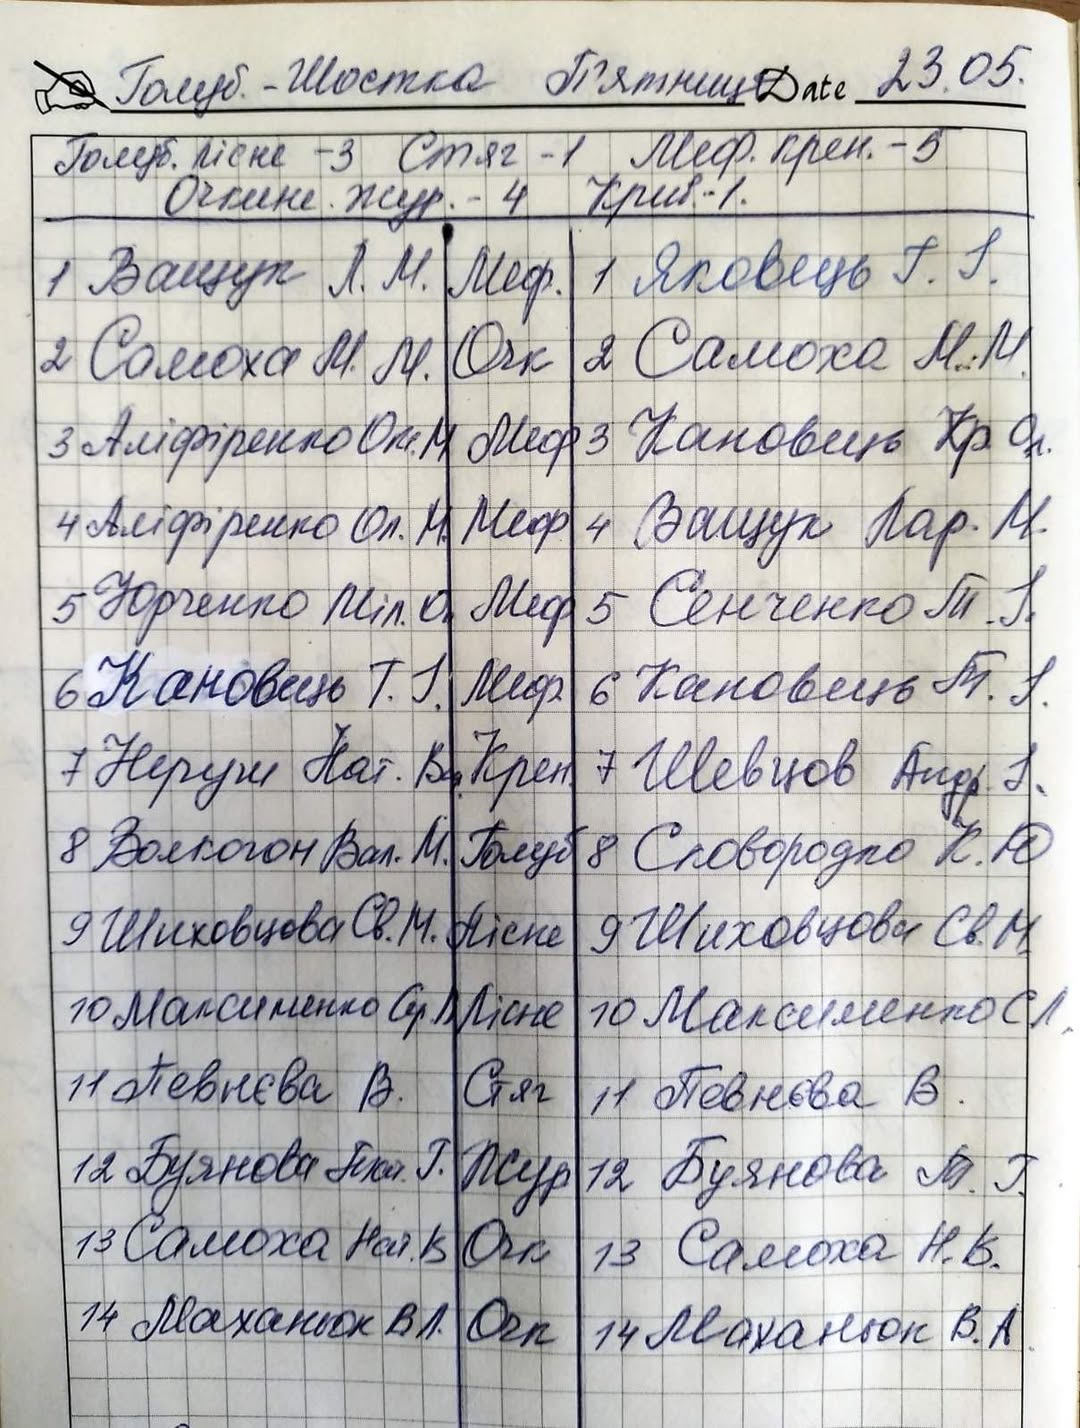 Голуб. - Шостка П'ятниця Date 23.05.
Голуб. Лісне -3 Стяг -1 Меф. Крен. -5
Очкине. Жур. - 4 Крив.-1.
1 Ващук Л. М. Меф. 1 Яковець Г. І.
2 Самоха М. М. Очк 2 Самоха М. М.
3 Аліфіренко Ок. М. Меф 3 Кановець Хр. Ол.
4 Аліфіренко Ол. М. Меф 4 Ващук Лар. М.
5 Юрченко Міл. О. Меф 5 Сенченко Т. І.
6 Кановець Т. І. Меф 6 Кановець Т. І.
7 Нат. Крен. 7 Шевцов Андр. І.
8 Волкогон Вал. М. Голуб 8 Сковородко К. Ю
9 Шиховцова Св. М. Лісне 9 Шиховцова Св. М
10 Максименко Сер Л Лісне 10 Максименко С Л.
11 Певнєва В. Стяг 11 Певнєва В.
12 Буянова Г. Жур 12 Буянова Т. Г.
13 Самоха Нат. В Очк 13 Самоха Н. В.
14 Маханьок В Л. Очк 14 Маханьок В. А